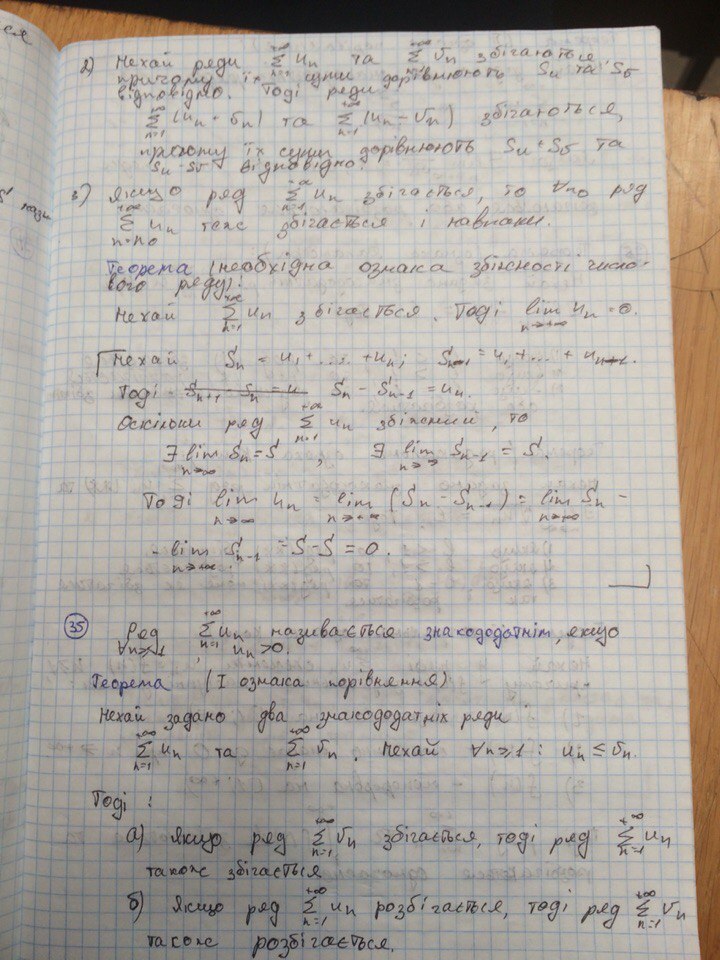 ся
2) Нехай ряди \sum_{n=1}^{+∞} u_n та \sum_{n=1}^{+∞} v_n збігаються
причому їх суми дорівнюють S_u та S_v
відповідно. Тоді ряди
\sum_{n=1}^{+∞} (u_n + v_n) та \sum_{n=1}^{+∞} (u_n - v_n) збігаються,
причому їх суми дорівнюють S_u + S_v та
S_u - S_v відповідно.
3) Якщо ряд \sum_{n=1}^{+∞} u_n збігається, то ∀n_0 ряд
\sum_{n=n_0}^{+∞} u_n теж збігається і навпаки.
Теорема (необхідна ознака збіжності число-
вого ряду):
Нехай \sum_{n=1}^{+∞} u_n збігається. Тоді \lim_{n→+∞} u_n = 0.
Нехай S_n = u_1 + ... + u_n; S_{n-1} = u_1 + ... + u_{n-1}.
Тоді S_{n+1} - S_n = u S_n - S_{n-1} = u_n.
Оскільки ряд \sum_{n=1}^{+∞} u_n збіжний, то
∃ \lim_{n→∞} S_n = S, ∃ \lim_{n→∞} S_{n-1} = S.
Тоді \lim_{n→∞} u_n = \lim_{n→+∞} (S_n - S_{n-1}) = \lim_{n→+∞} S_n -
- \lim_{n→+∞} S_{n-1} = S - S = 0.
35 Ряд \sum_{n=1}^{+∞} u_n називається знакододатнім, якщо
∀n≥1, u_n > 0.
Теорема (I ознака порівняння)
Нехай задано два знакододатніх ряди
\sum_{n=1}^{+∞} u_n та \sum_{n=1}^{+∞} v_n. Нехай ∀n≥1: u_n ≤ v_n.
Тоді:
а) Якщо ряд \sum_{n=1}^{+∞} v_n збігається, тоді ряд \sum_{n=1}^{+∞} u_n
також збігається
б) Якщо ряд \sum_{n=1}^{+∞} u_n розбігається, тоді ряд \sum_{n=1}^{+∞} v_n
також розбігається.